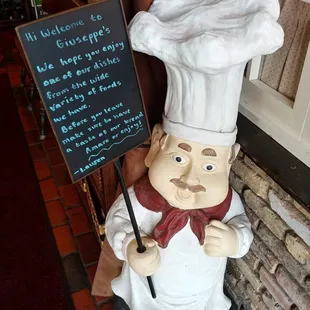 Hi Welcome to
Giuseppe's
We hope you enjoy
one of our dishes
from the wide
variety of foods
we have.
Before you leave
make sure to have
a taste of our bread
Amaro or enjoy!!
-Lauren